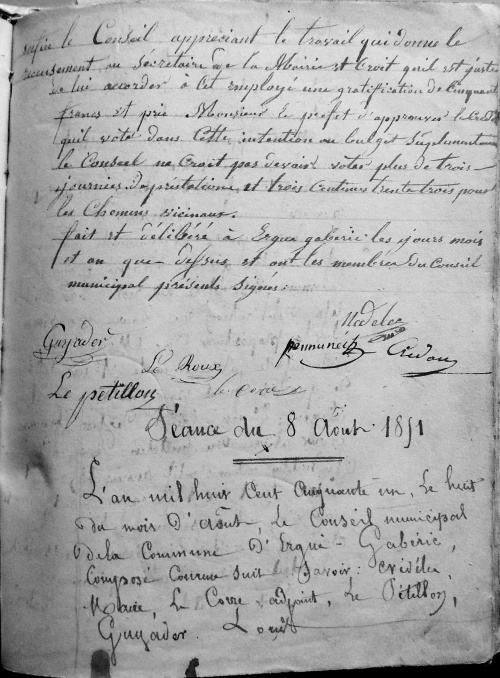 enfin le Conseil appréciant le travail qui donne le
recensement au Secrétaire de la Mairie et Croit qu'il est juste
de lui accorder à cet employé une gratification de Cinquante
francs et prie Monsieur le préfet d'approuver le Crédit
qu'il vote dans Cette intention au budget Suplementaire
le Conseil ne Croit pas devoir voter plus de trois
journées de prestations et trois Centimes trente trois pour
les Chemins vicinaux.
fait et délibéré à Ergué gabéric les jours mois
et an que dessus et ont les membres du Conseil
municipal présents Signés.
Nédélec
Guyader
Le Roux
Credou
Le pétillon
le Corre
Séance du 8 Août 1851
L'an mil huit Cent Cinquante un, le huit
du mois d'août, le Conseil municipal
de la Commune d'Ergué-Gabéric,
Composé Comme Suit Savoir: Nédélec
Maire, Le Corre adjoint, Le Pétillon,
Guyader.